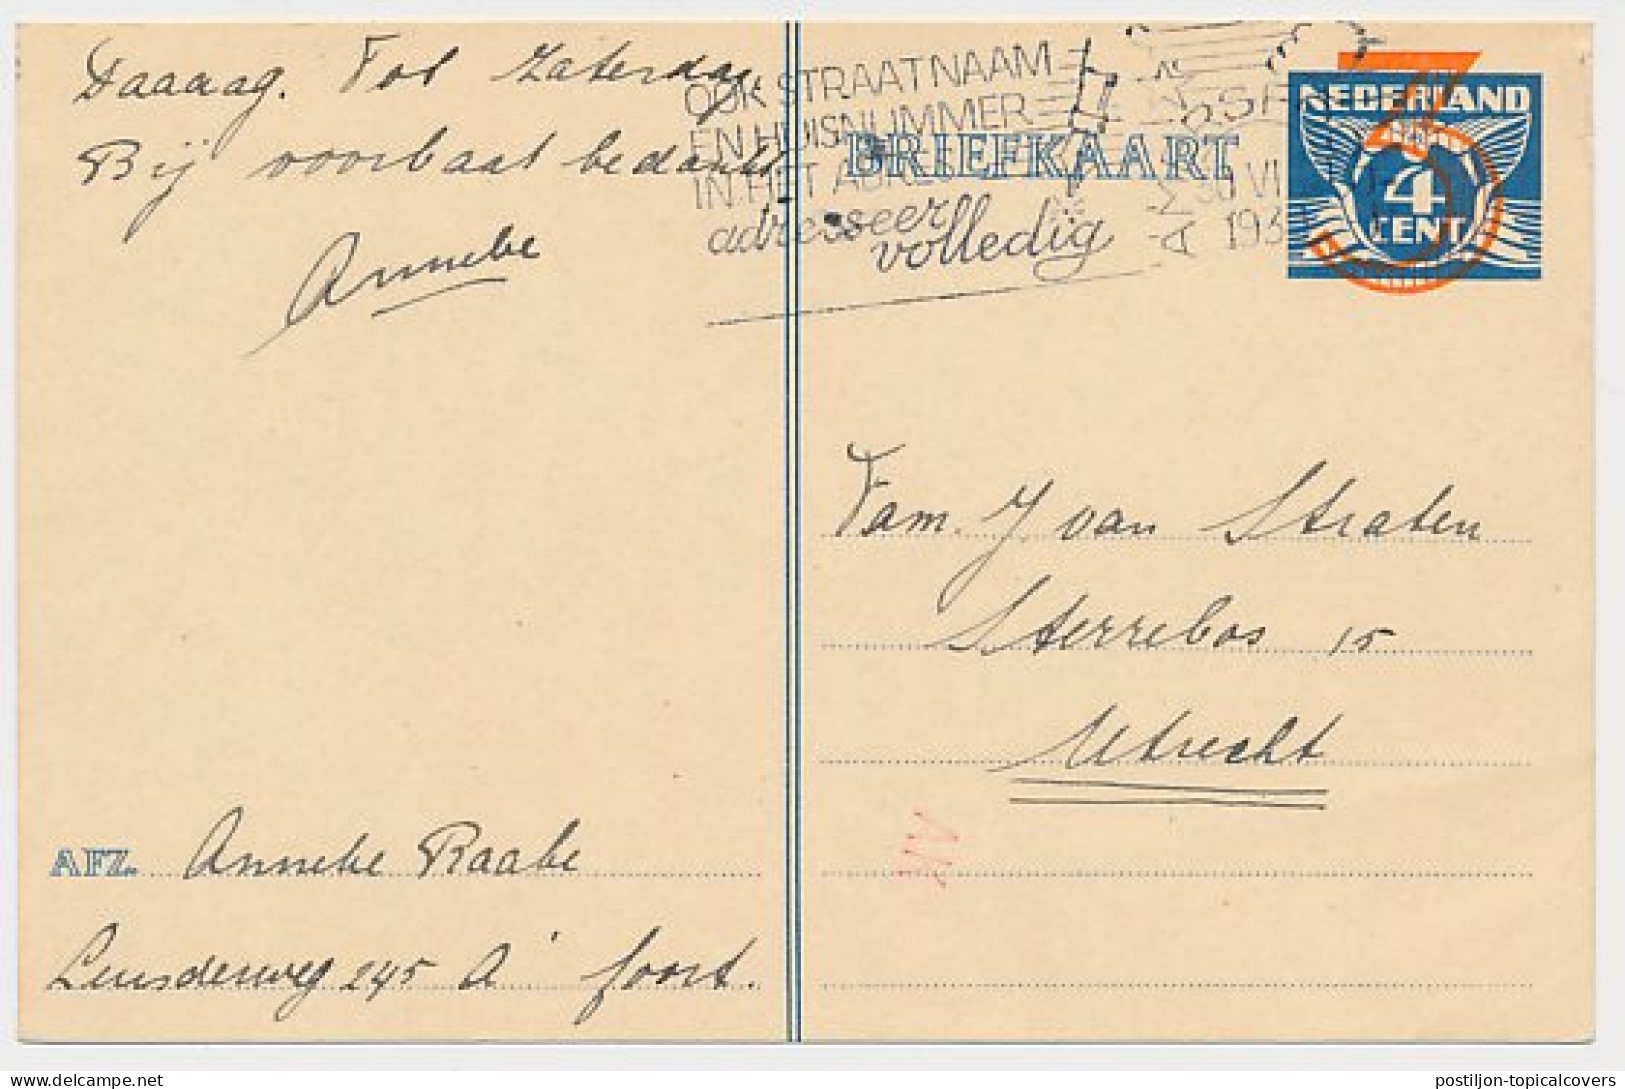 Daaaag. Tot Zaterdag.
Bij voorbaat bedankt.
Anneke
OOK STRAATNAAM
EN HUISNUMMER
IN HET ADRES
adresseer
volledig
BRIEFKAART
VI
193
NEDERLAND
3
4
CENT
Fam. J van Straten
Sterrebos 15
Utrecht
AFZ. Anneke Raabe
Leusderweg 245 A'foort.
postiljon-topicalcovers / delcampe.net